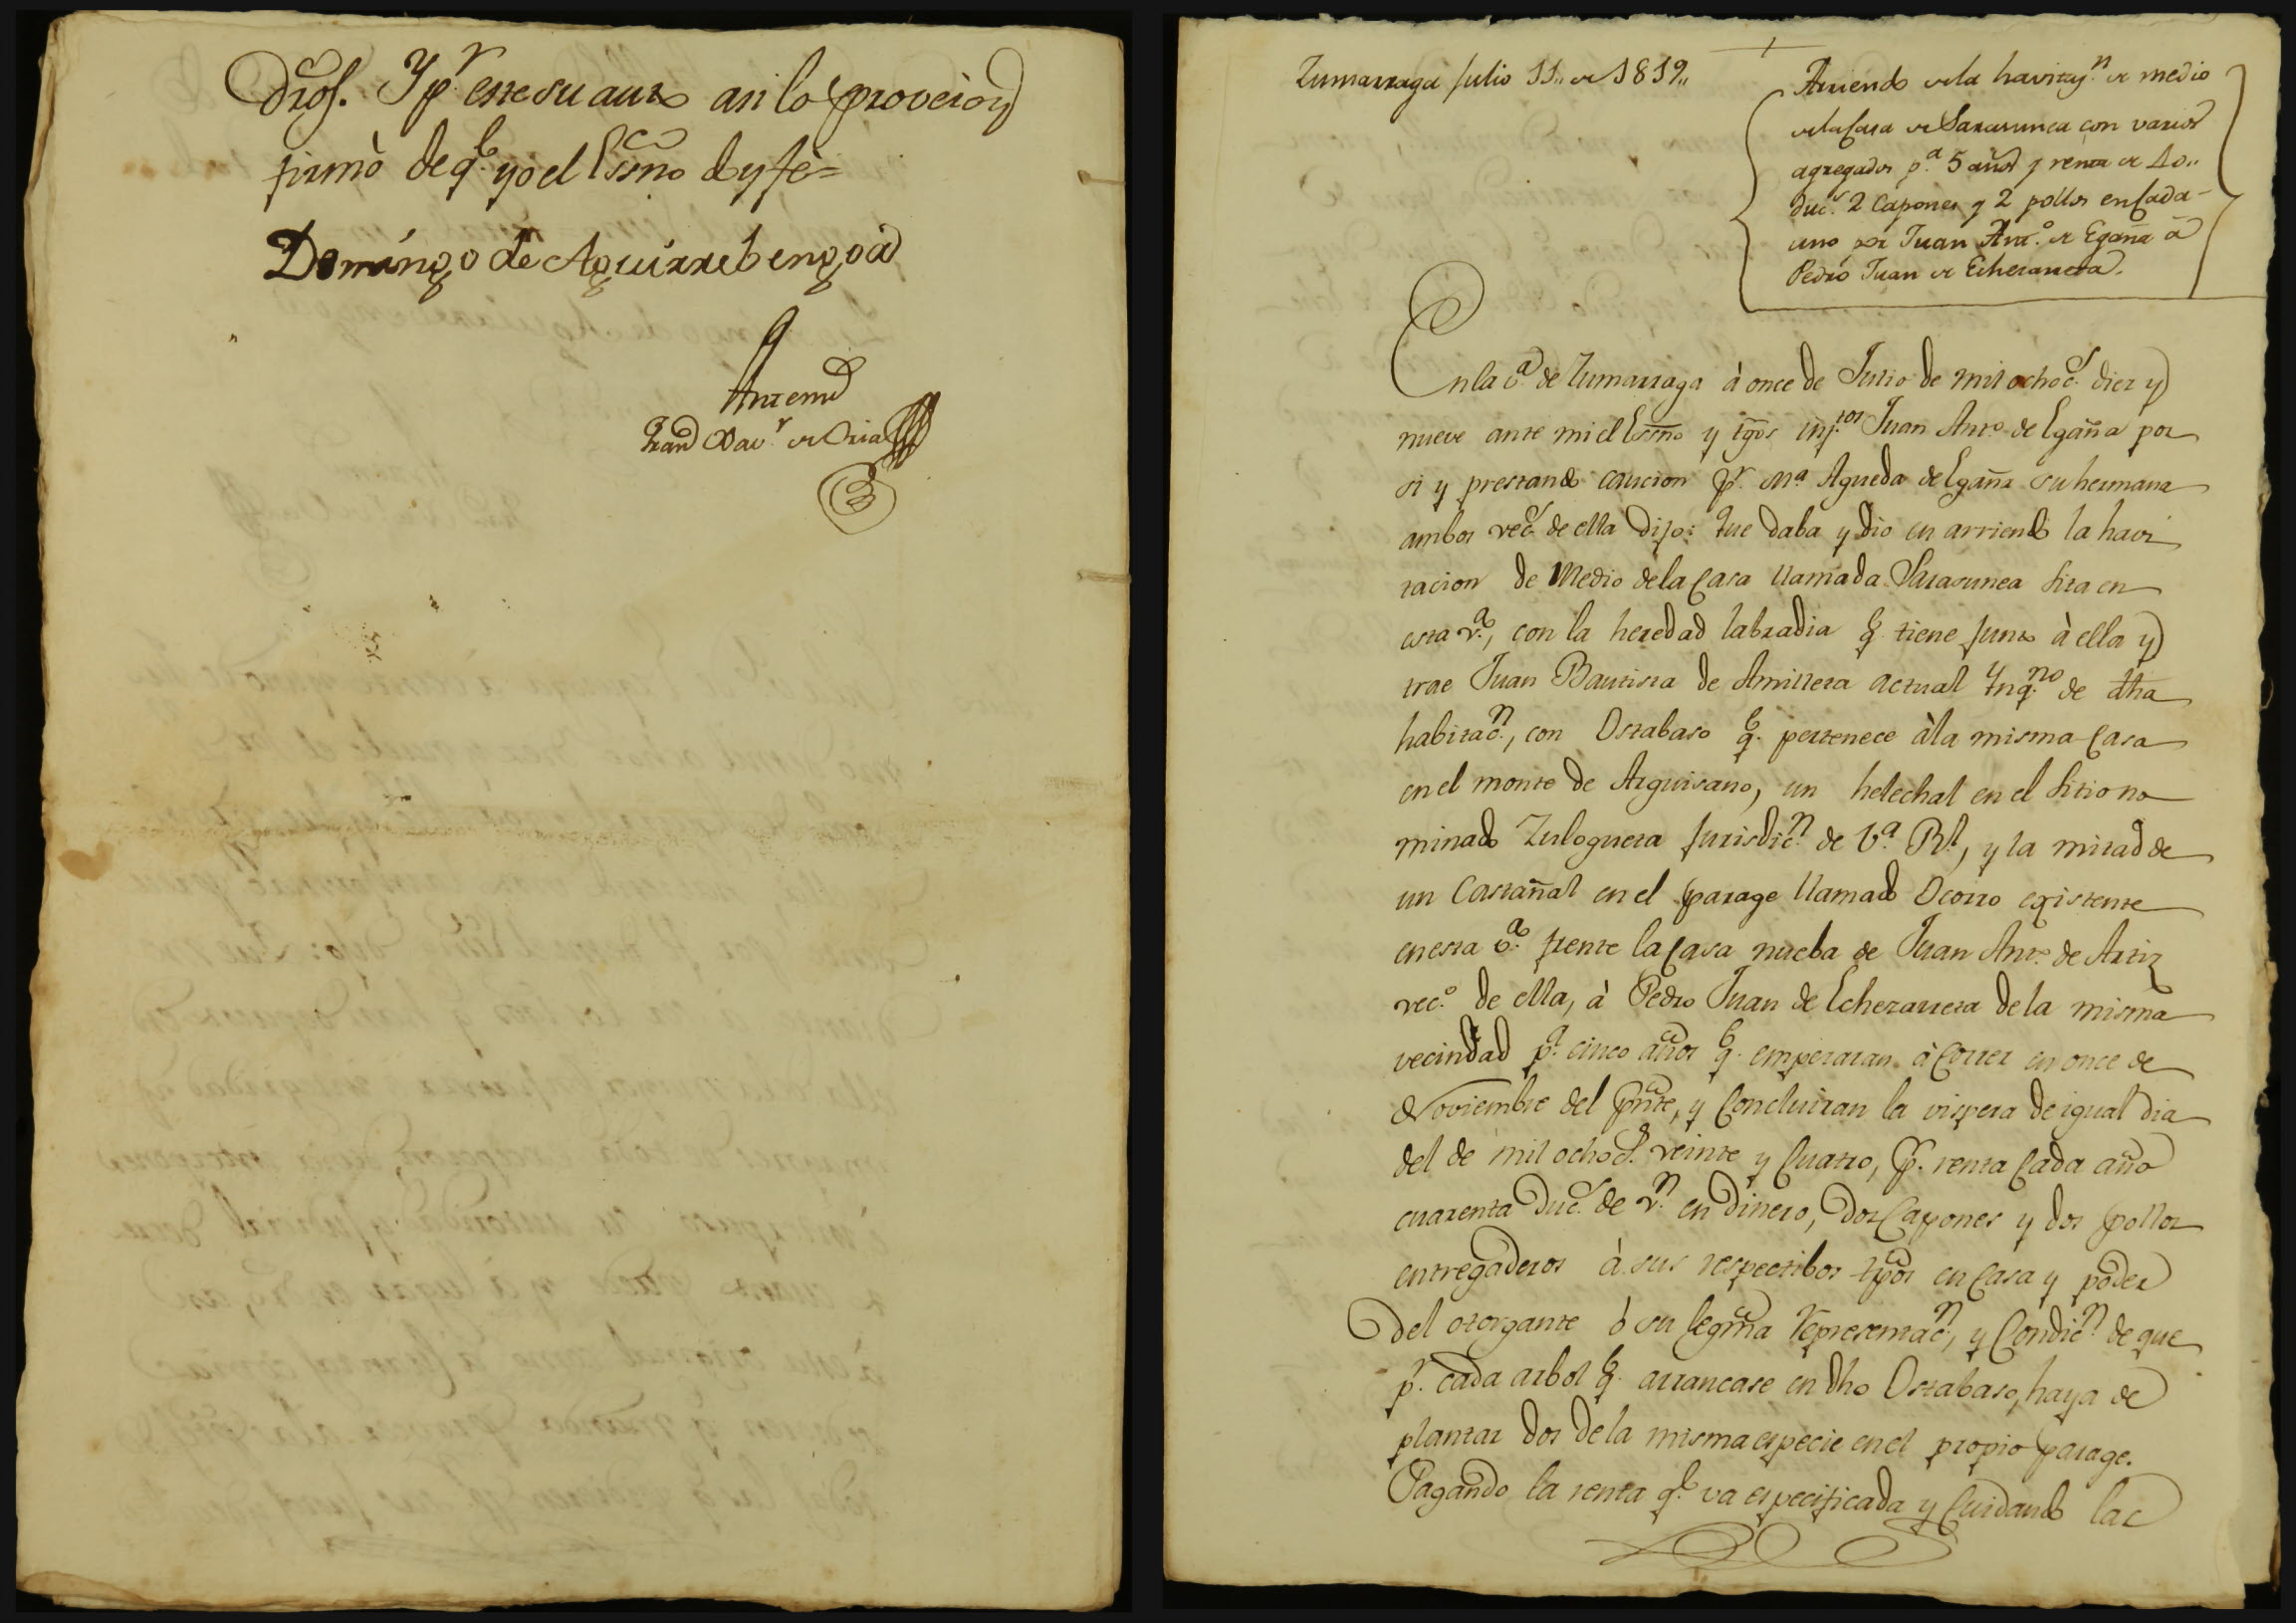 dros. Y pr. este su auto asi lo proveió y
firmó de qe. yo el Essno doy fé=
Domingo de Aguirrebengoa
Antemi
Franco Xavr. de Oria
Zumarraga Julio 11,, de 1819,,
Arriendo de la havitazn. de medio
de la Casa de Sarasunea con varios
agregados pa. 5 años y renta de 40,,
duc.s 2 Capones y 2 pollos en Cada
uno por Juan Anto. de Egaña á
Pedro Juan de Echezarreta.
En la va. de Zumarraga à once de Julio de mil ochocs. diez y
nueve ante mi el Essno y tgos infrtos Juan Anto. de Egaña por
si y prestando caucion pr. Ma. Agueda de Egaña su hermana
ambos vecs. de ella Dijo: Que daba y dio en arriendo la havi
tacion de Medio de la Casa llamada Sarasunea sita en
esta va., con la heredad labradia q. tiene junto à ella y
trae Juan Bautista de Amilleta actual Ynqno. de dha
habitacn., con Ostabaso q. pertenece à la misma Casa
en el monte de Arguisano, un helechal en el sitio no
minado Zuloguera Jurisdicn. de Va. Rl., y la mitad de
un Castañal en el parage llamado Ocorro existente
en esta va. frente la Casa nueba de Juan Anto. de Artiz
veco. de ella, à Pedro Juan de Echezarreta de la misma
vecindad pr. cinco años q. empezaran à Correr en once de
Noviembre del pnte, y Concluiran la vispera de igual dia
del de mil ochocs. veinte y Cuatro, pr. renta Cada año
cuarenta Ducs. de vn. en Dinero, Dos Capones y dos pollos
entregaderos à sus respectibos tpos en Casa y poder
Del otorgante ó su legma representacn., y Condicn. de que
pr. cada arbol q. arrancase en dho Ostabaso, haya de
plantar dos de la misma especie en el propio parage.
Pagando la renta qe. va especificada y Cuidando la c